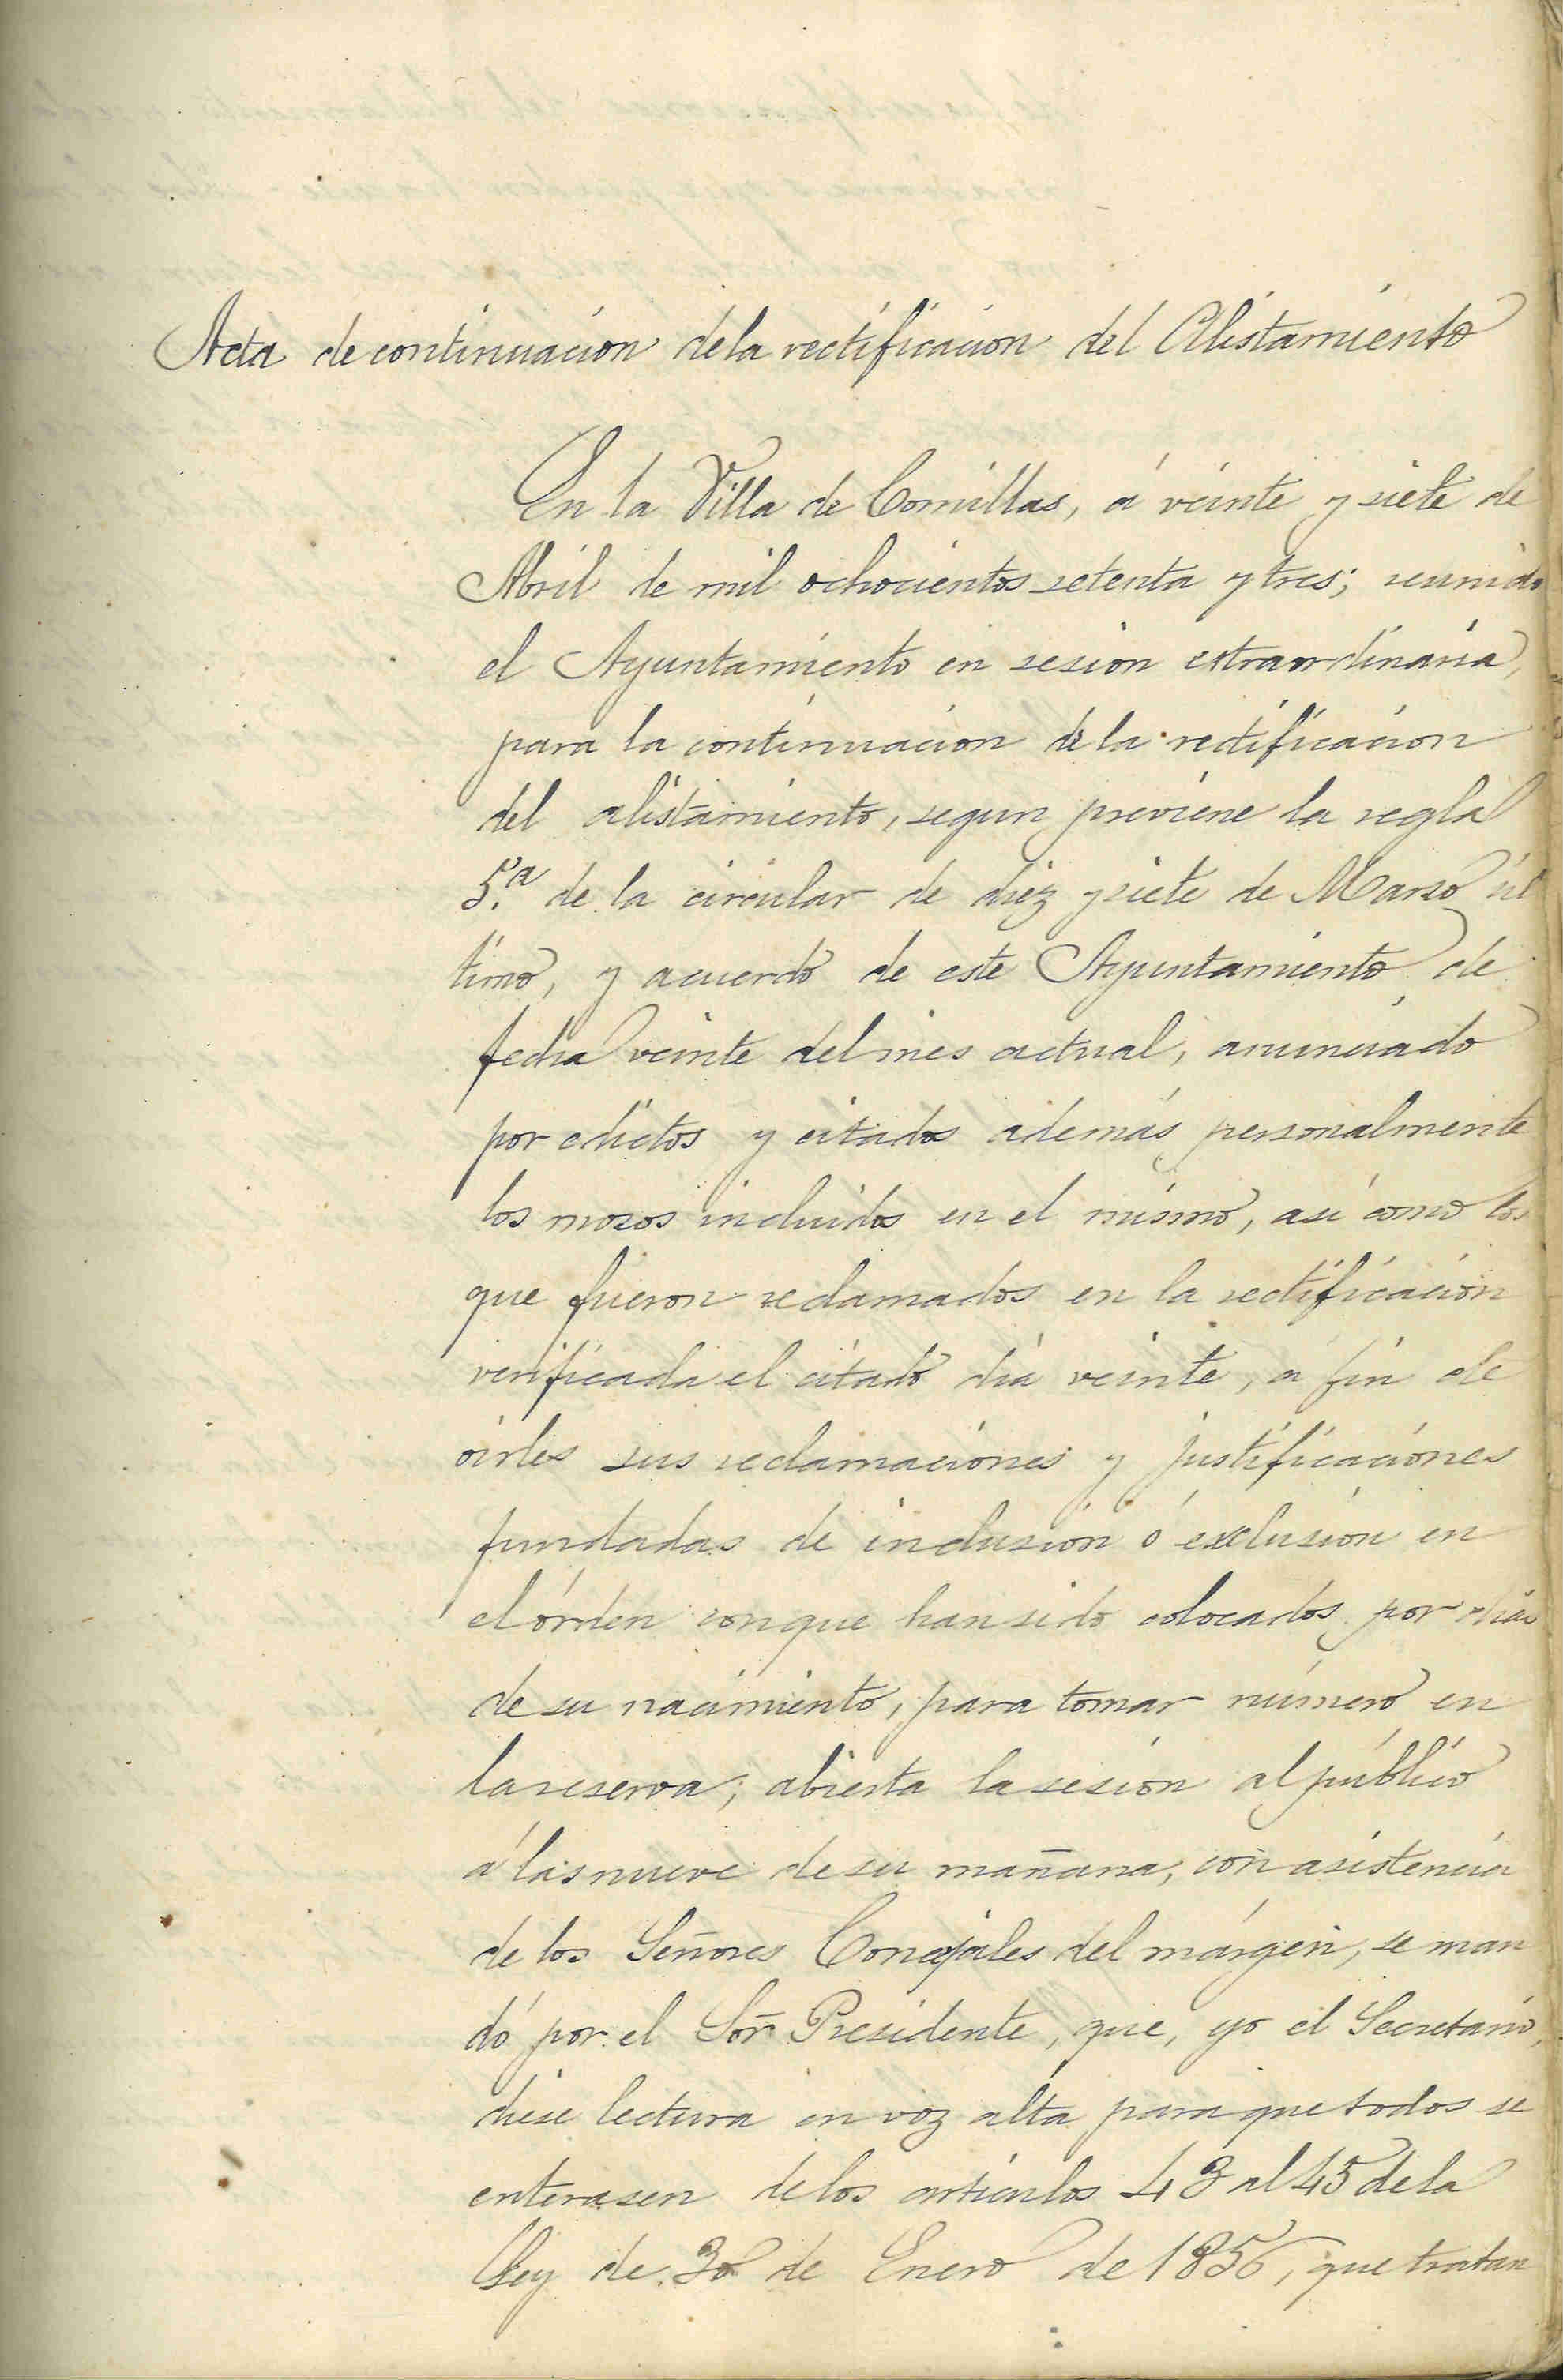 Acta de continuacion de la rectificacion del Alistamiento
En la Villa de Comillas, á veinte y siete de
Abril de mil ochocientos setenta y tres; reunido
el Ayuntamiento en sesion estraordinaria,
para la continuacion de la rectificacion
del alistamiento, segun previene la regla
5.ª de la circular de diez y siete de Marso úl
timo, y acuerdo de este Ayuntamiento de
fecha veinte del mes actual, anunciado
por edictos y citados además personalmente
los mosos incluidos en el mismo, asi como los
que fueron reclamados en la rectificacion
verificada el citado dia veinte, a fin de
oirles sus reclamaciones y justificaciones
fundadas de inclusion ó exclusion en
el órden con que han sido colocados por dias
de su nacimiento, para tomar número en
la reserva; abierta la sesion al público
á las nueve de su mañana, con asistencia
de los Señores Concejales del márgen, se man
dó por el Soñr Presidente, que, yo el Secretario,
diese lectura en voz alta para que todos se
enterasen de los articulos 43 al 45 de la
Ley de 30 de Enero de 1856, que tratan